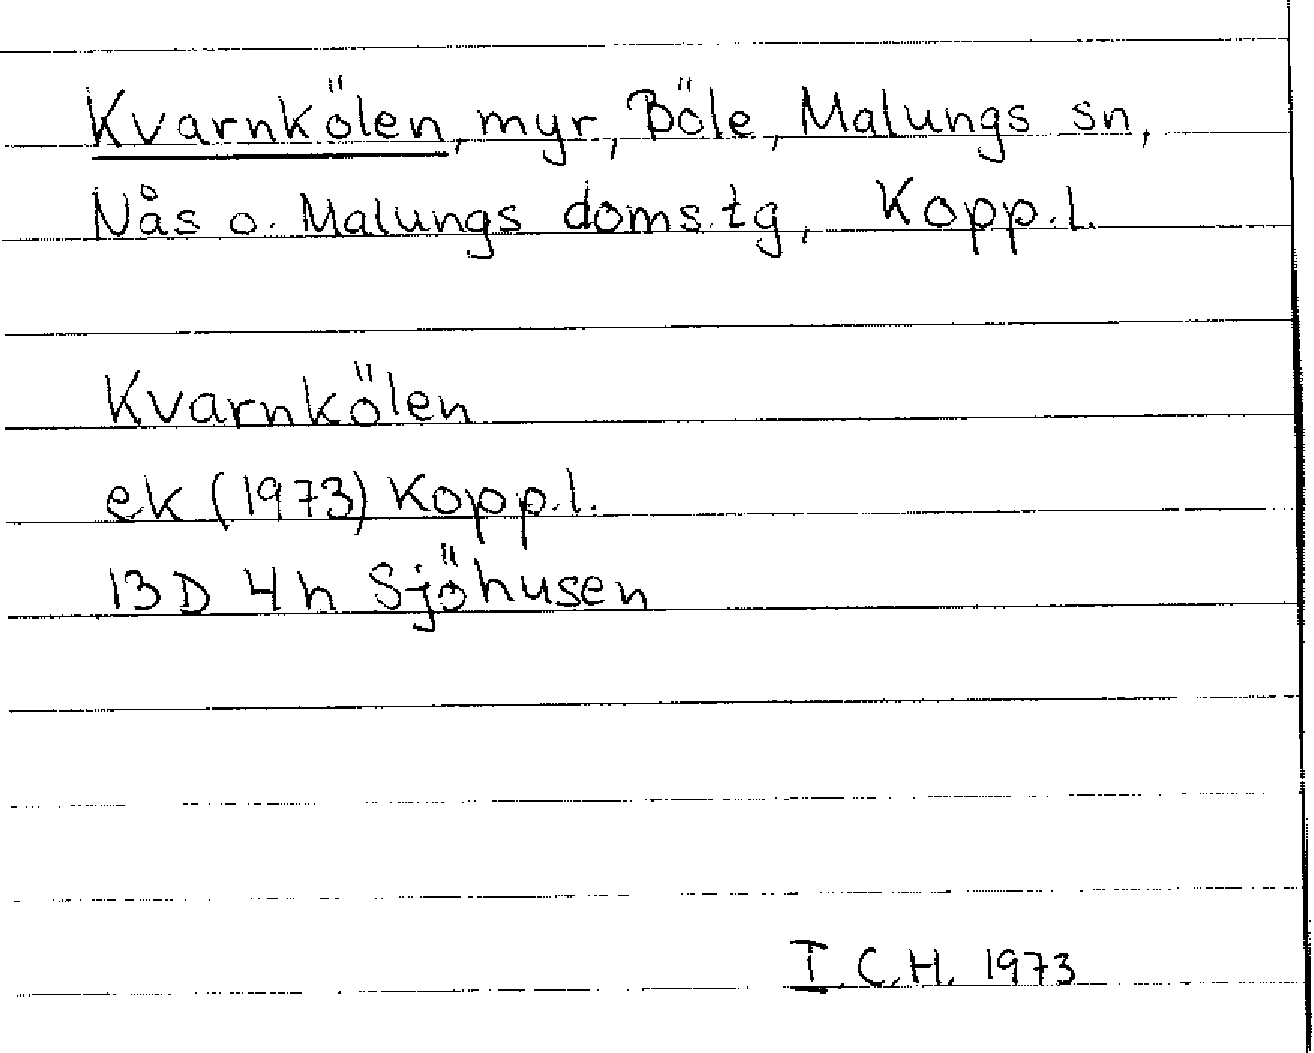 Kvarnkölen, myr, Böle, Malungs sn,
Nås o. Malungs doms.tg, Kopp.l.
Kvarnkölen
ek (1973) Kopp.l.
13D 4h Sjöhusen
I.C.H. 1973